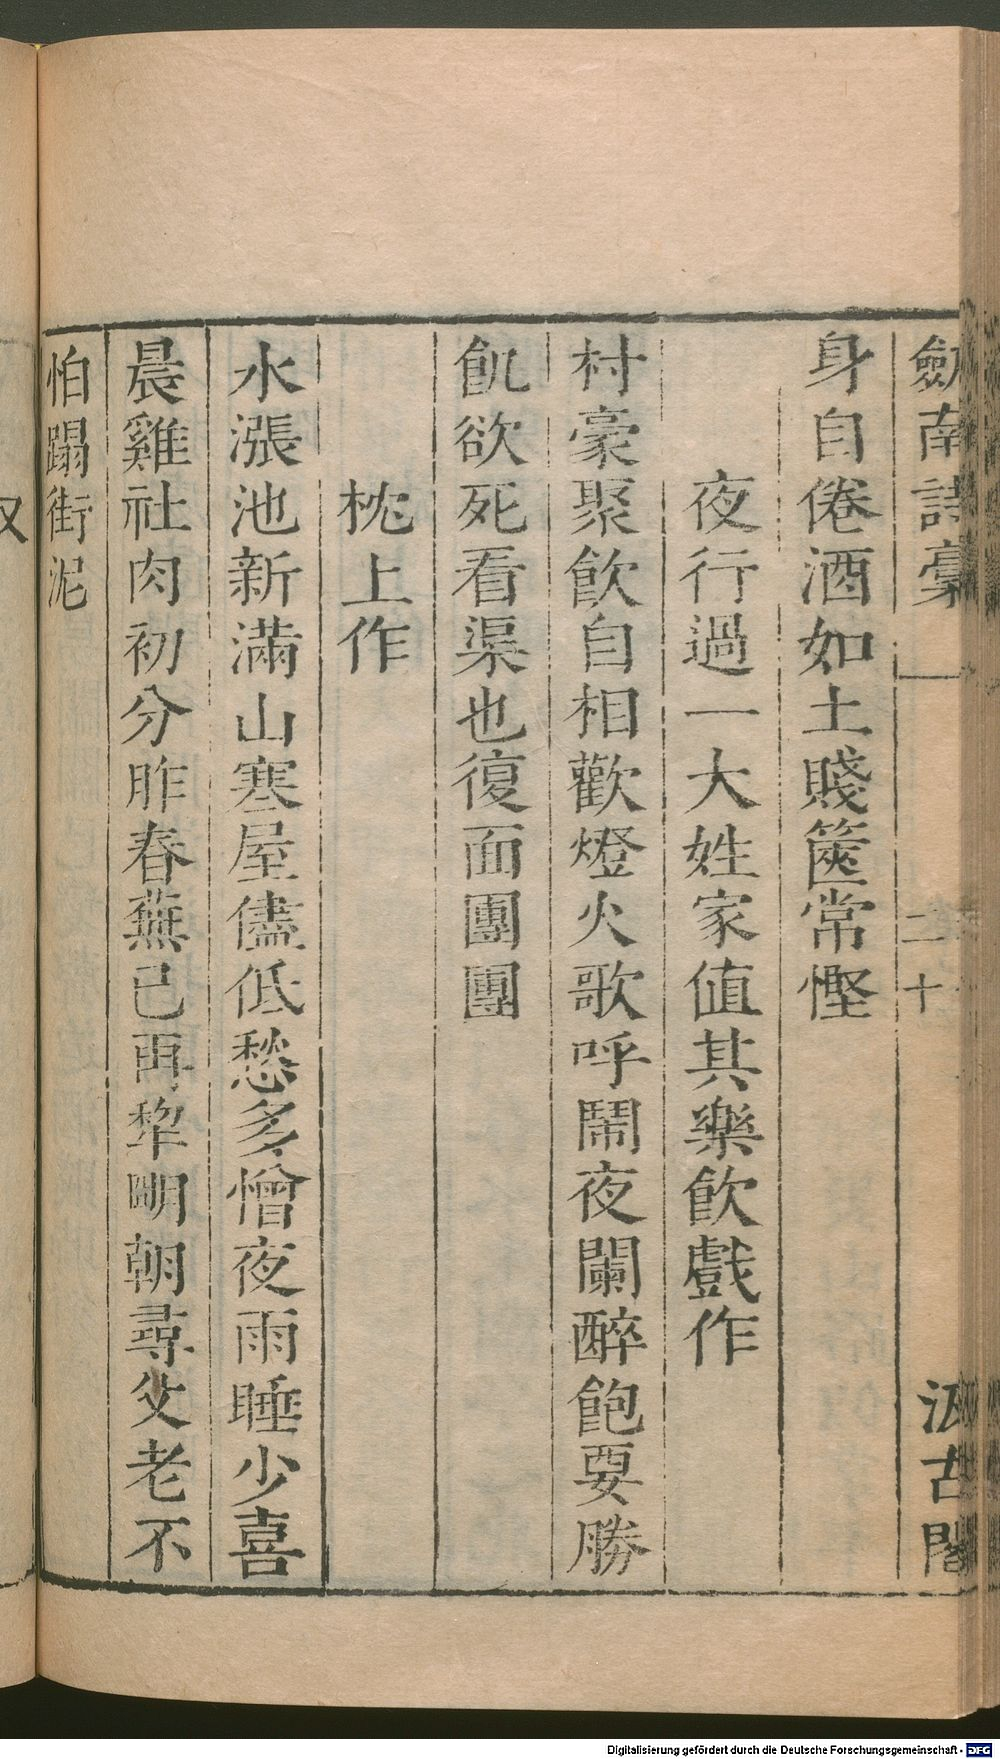 劒南詩稾 二十 汲古閣
身自倦酒如土賤篋常慳
夜行過一大姓家值其樂飲戲作
村豪聚飲自相歡燈火歌呼鬧夜闌醉飽要勝
飢欲死看渠也復面團團
枕上作
水漲池新滿山塞屋儘低愁多憎夜雨睡少喜
晨雞社肉初分胙春蕪已再犂明朝尋父老不
怕蹋街泥
Digitalisierung gefördert durch die Deutsche Forschungsgemeinschaft - DFG